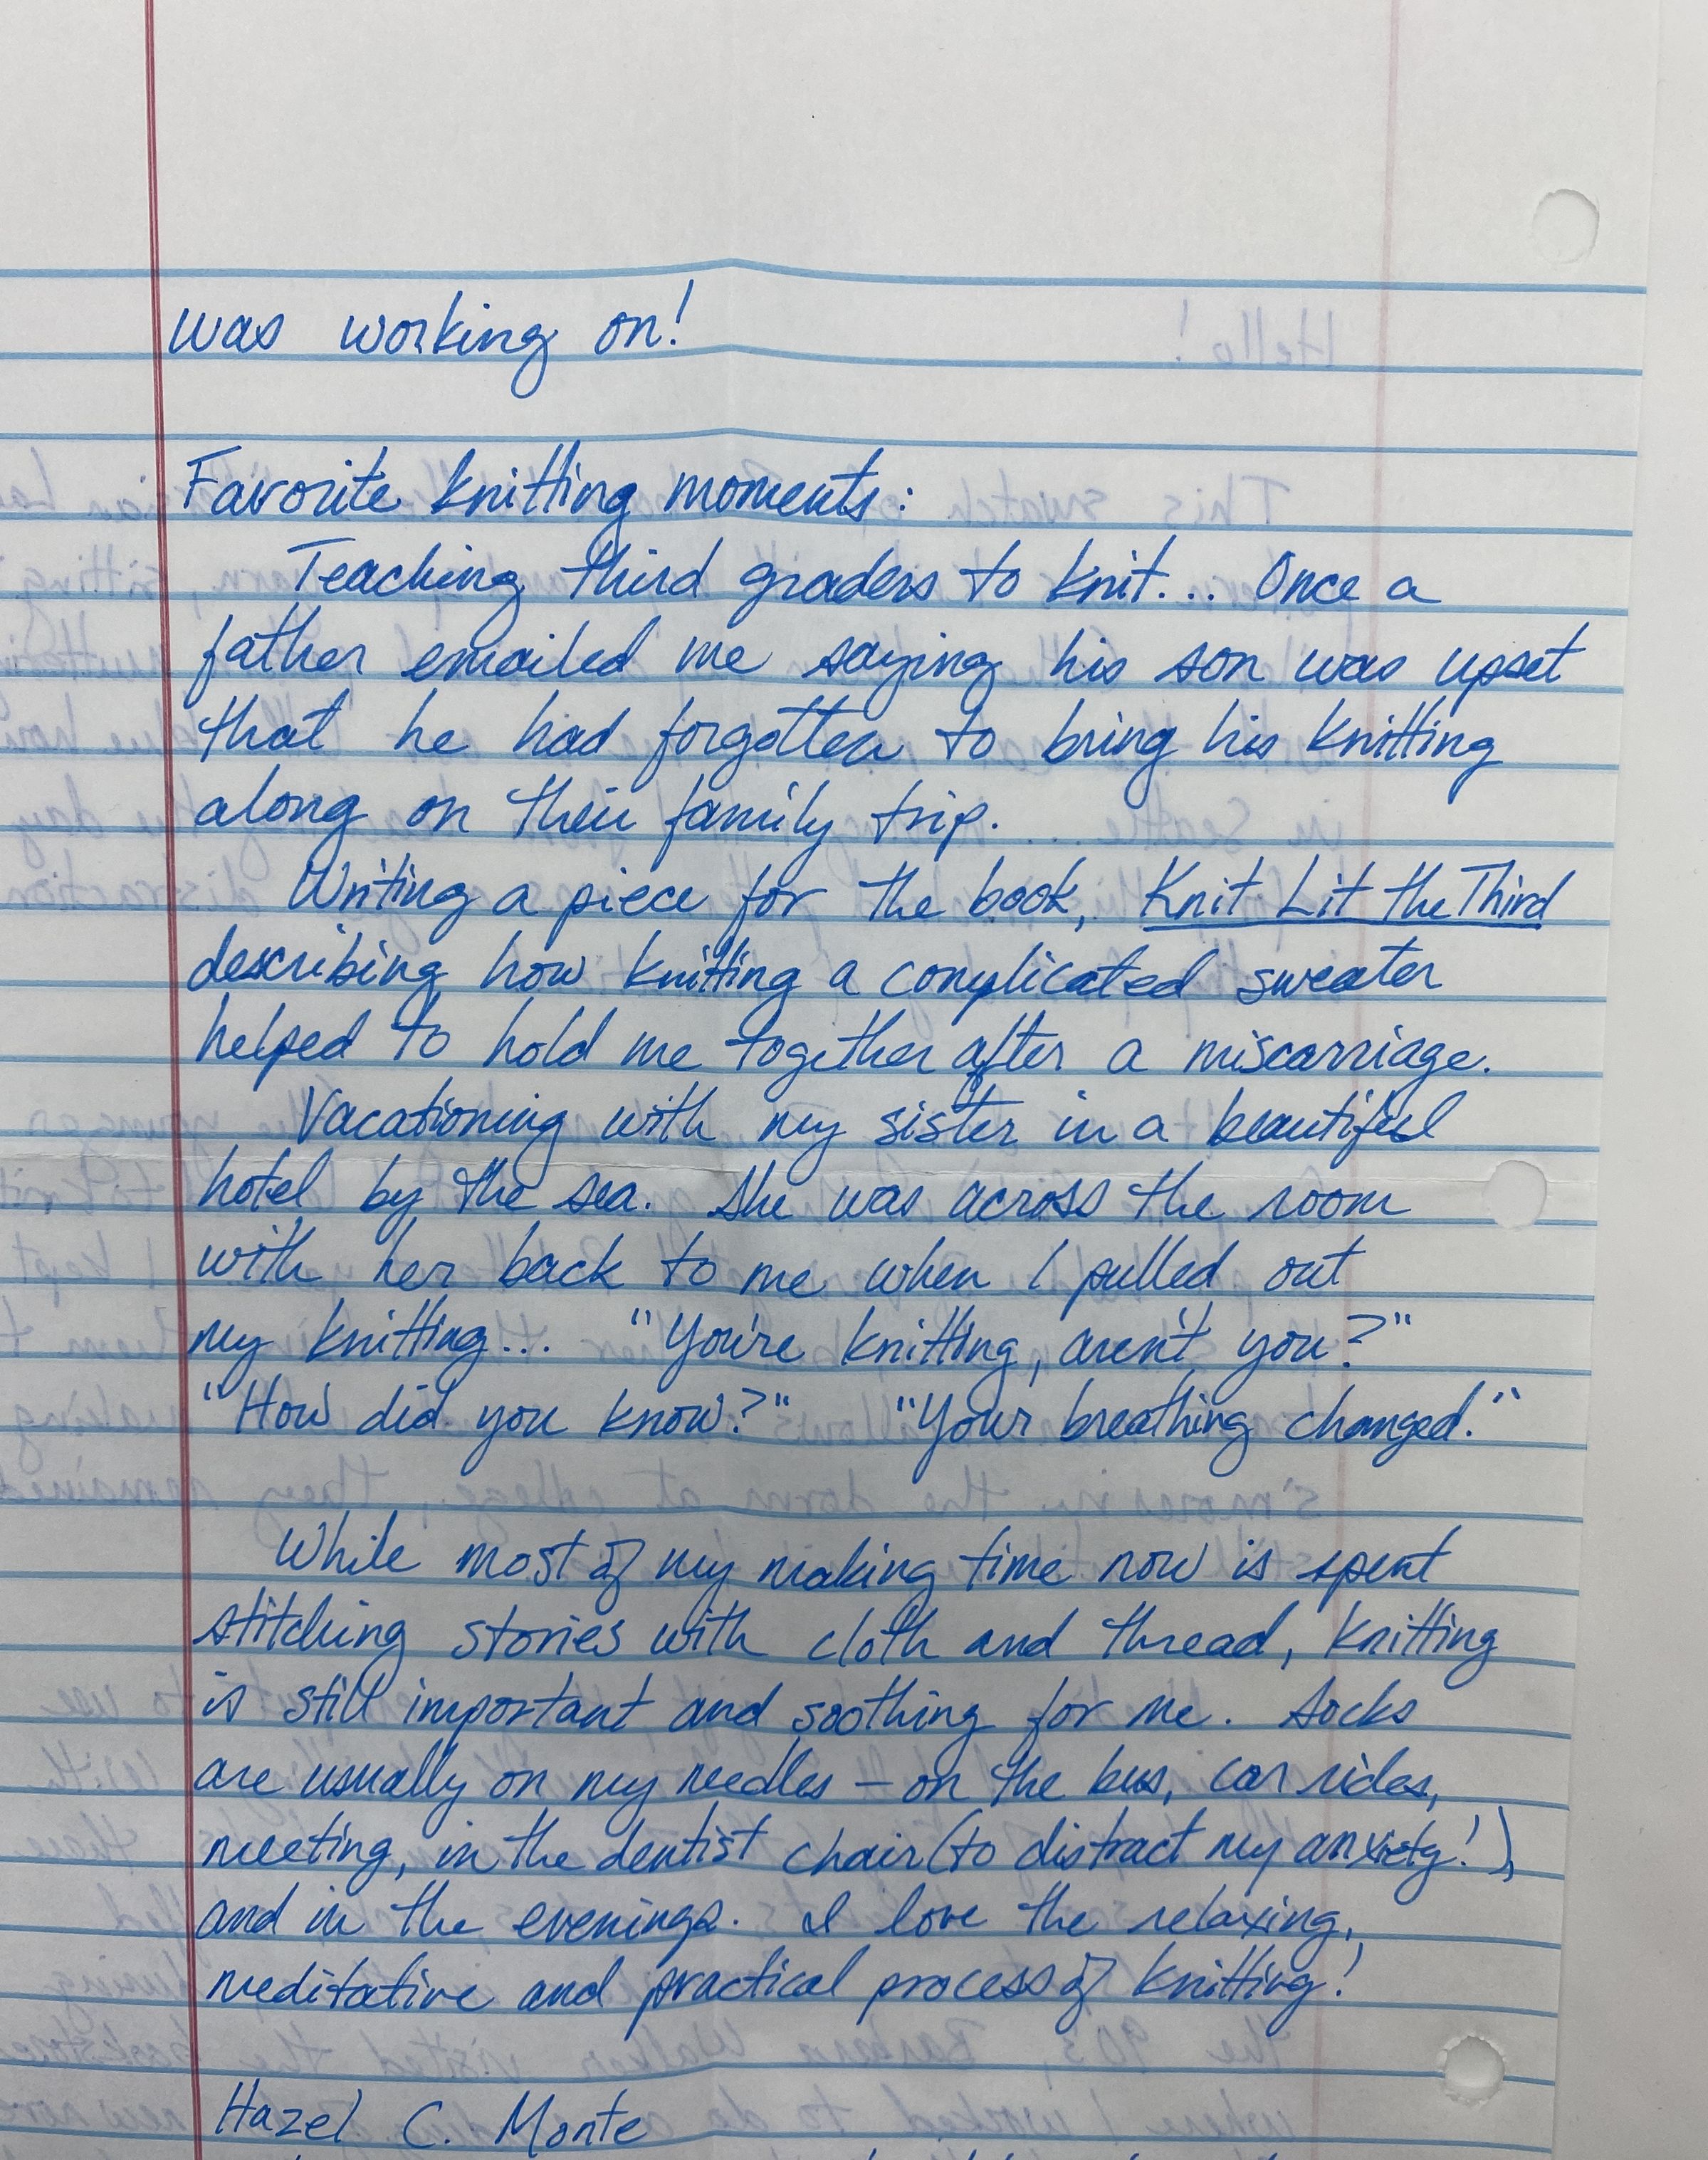 was working on!
Favorite knitting moments:
Teaching third graders to knit... Once a
father emailed me saying his son was upset
that he had forgotten to bring his knitting
along on their family trip.
Writing a piece for the book, Knit Lit the Third
describing how knitting a complicated sweater
helped to hold me together after a miscarriage.
Vacationing with my sister in a beautiful
hotel by the sea. She was across the room
with her back to me when I pulled out
my knitting... "You're knitting, aren't you?"
"How did you know?" "Your breathing changed."
While most of my making time now is spent
stitching stories with cloth and thread, knitting
is still important and soothing for me. Socks
are usually on my needles - on the bus, car rides,
meeting, in the dentist chair (to distract my anxiety!),
and in the evenings. I love the relaxing,
meditative and practical process of knitting!
Hazel C. Monte